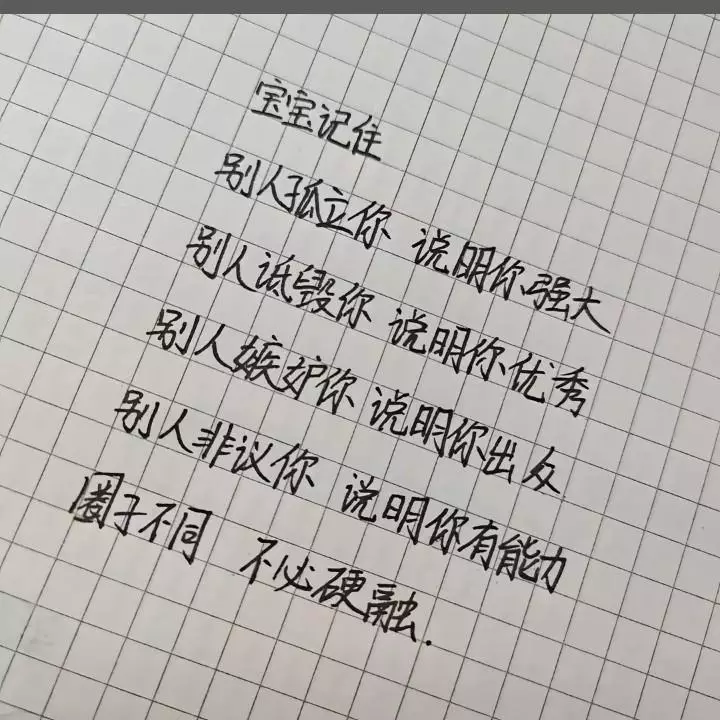 宝宝记住
别人孤立你 说明你强大
别人诋毁你 说明你优秀
别人嫉妒你 说明你出众
别人非议你 说明你有能力
圈子不同 不必硬融.